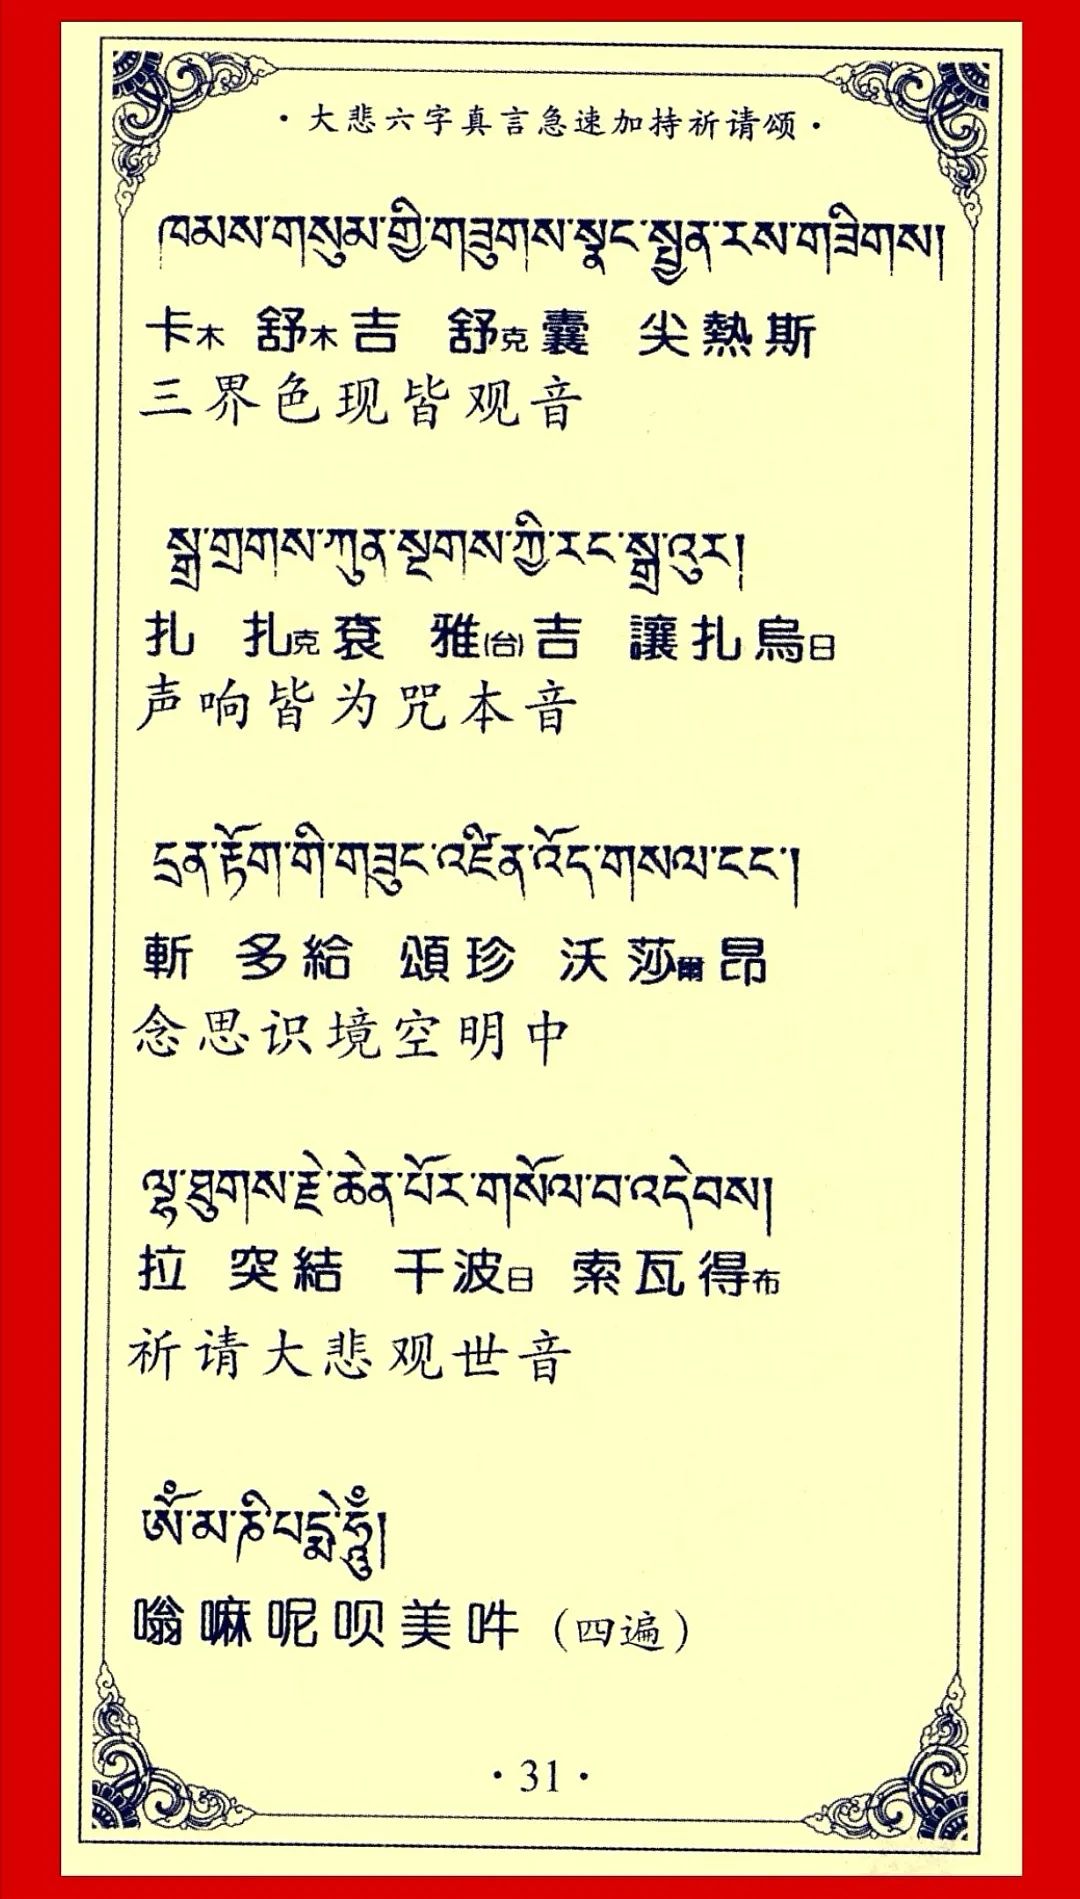 ·大悲六字真言急速加持祈请颂·
ཁམས་གསུམ་གྱི་གཟུགས་སྣང་སྤྱན་རས་གཟིགས།
卡木 舒木吉 舒克囊 尖熱斯
三界色现皆观音
སྒྲ་གྲགས་ཀུན་སྔགས་ཀྱི་རང་སྒྲ་འུར།
扎 扎克袞 雅(台)吉 讓扎烏日
声响皆为咒本音
དྲན་རྟོག་གི་གཟུང་འཛིན་འོད་གསལ་ངང་།
斬 多給 頌珍 沃莎爾昂
念思识境空明中
ལྷ་ཐུགས་རྗེ་ཆེན་པོར་གསོལ་བ་འདེབས།
拉 突結 千波日 索瓦得布
祈请大悲观世音
ཨོཾ་མ་ཎི་པདྨེ་ཧཱུྃ།
嗡嘛呢呗美吽（四遍）
·31·